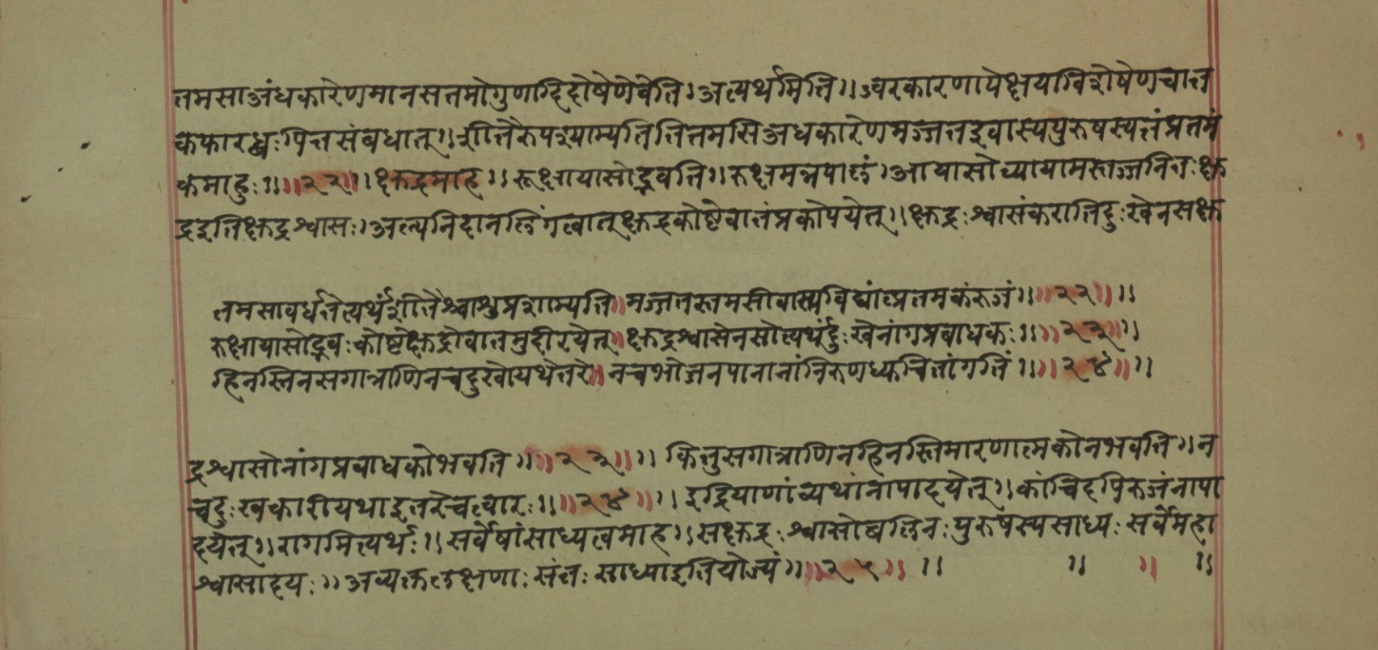 तमसाअंधकारेणमानसतमोगुणाद्दिदोषेणेवेति।अत्यर्थमिति॥ज्वरकारणापेक्षयाविशेषेणचात्त
कफारब्धःपित्तसंबधात्॥शीतैरुपश्याम्यतितित्तमसिअधकारेणमज्जत्तइवास्यपुरुषस्यत्तंप्रतमं
कमाहुः॥॥२२॥॥क्षुद्रमाह॥रूक्षायासोद्भवति॥रुक्षमन्नपाठं।आयासोव्यायामस्तज्जनितःक्षु
द्रइतिक्षुद्रश्वासः।अल्पनिदानलिंगत्वात्क्षुद्रकोष्टेवातंप्रकोपयेत्॥क्षुद्रःश्वासंकरातिदुःखेनसक्षु
तमसावर्धतेत्यर्थंशीतैश्चाशुप्रशाम्यति॥मज्जतस्तमसीवास्यविद्यांत्प्रतमकंरुजं॥॥२२॥॥
रुक्षायासोद्भवःकोष्टेक्षुद्रोवातमुदीरयेत्॥क्षुद्रश्वासेनसोत्यर्थंदुःखेनांगप्रबाधकः॥॥२३॥॥
हिनस्तिनसगात्राणिनचदुखोयथेतरे॥नचभोजनपानानांनिरुणध्युचितांगतिं॥॥२४॥॥
द्रश्वासोनांगप्रबाधकोभवति॥॥२३॥॥कितुसगात्राणिनहिनस्तिमारणात्मकोनभवति॥न
चदुःखकारीयथाइतरेचत्वारः॥॥२४॥॥इद्रियाणांव्यथांनापादयेत्॥कांचिदपिरुजंनापा
दयेत्॥रागमित्यर्थः॥सर्वेषांसाध्यत्वमाह॥सक्षुद्रःश्वासोबलिनःपुरुषस्यसाध्यःसर्वेमहा
श्वासादयः॥अव्यक्तलक्षणाःसंतःसाध्याइतियोज्यं॥॥२५॥॥ ॥ ॥ ॥